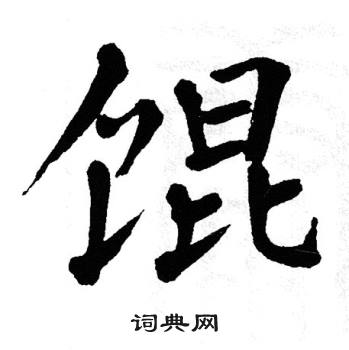 馄
词典网